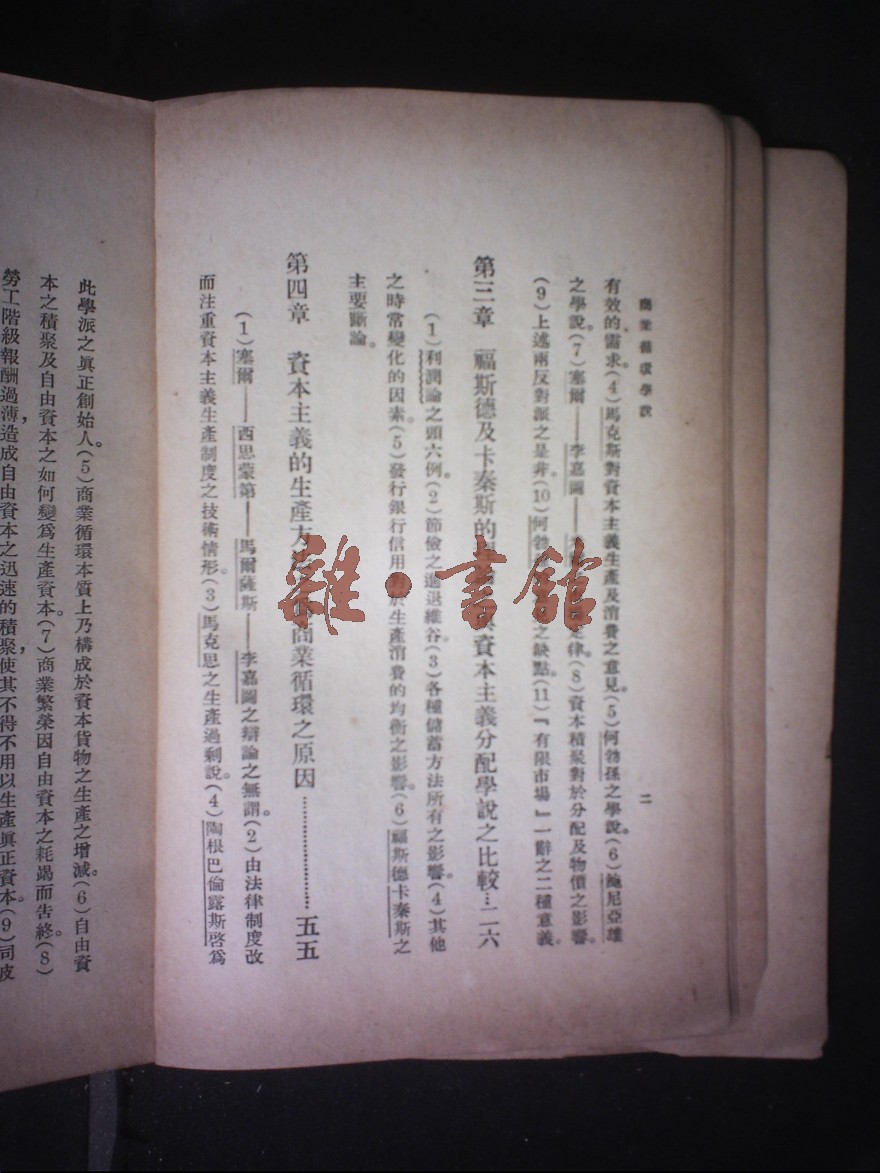 商業循環學說
二
有效的需求。(4)馬克斯對資本主義生產及消費之意見。(5)何勃孫之學說。(6)鮑尼亞雄
之學說。(7)塞爾——李嘉圖——律。(8)資本積聚對於分配及物價之影響。
(9)上述兩反對派之是非。(10)何勃之缺點。(11)『有限市場』一辭之二種意義。
第三章 福斯德及卡秦斯的資本主義分配學說之比較…二六
(1)利潤論之頭六例。(2)節儉之進退維谷。(3)各種儲蓄方法所有之影響。(4)其他
之時常變化的因素。(5)發行銀行信用對於生產消費的均衡之影響。(6)福斯德卡秦斯之
主要斷論。
第四章 資本主義的生產方商業循環之原因……………五五
(1)塞爾——西思蒙第——馬爾薩斯——李嘉圖之辯論之無謂。(2)由法律制度改
而注重資本主義生產制度之技術情形。(3)馬克思之生產過剩說。(4)陶根巴倫露斯啓為
此學派之眞正創始人。(5)商業循環本質上乃構成於資本貨物之生產之增減。(6)自由資
本之積聚及自由資本之如何變爲生產資本。(7)商業繁榮因自由資本之耗竭而告終。(8)
勞工階級報酬過薄,造成自由資本之迅速的積聚,使其不得不用以生產眞正資本。(9)司皮
雜·書館